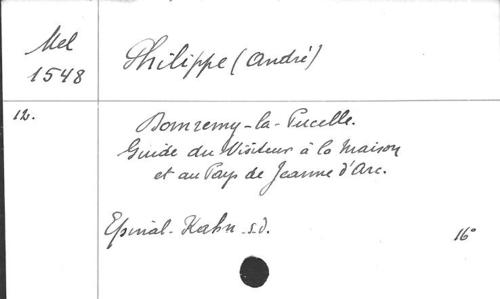 Mel
1548
Philippe (André)
12.
Domremy-la-Pucelle.
Guide du Visiteur à la Maison
et au Pays de Jeanne d'Arc.
Epinal - Kahn - s.d.
16°